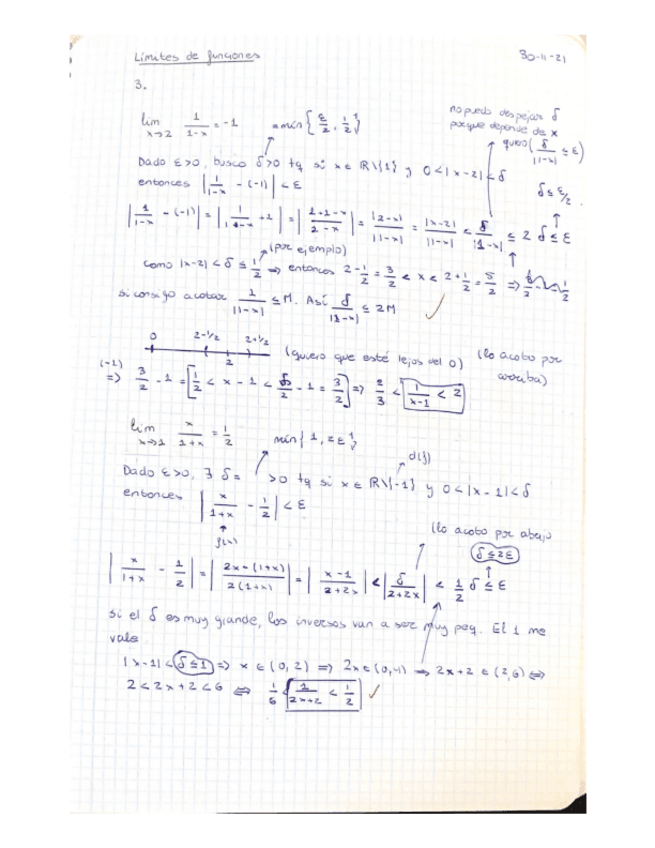 Límites de funciones 30-11-21
3.
lim x→2 1/(1-x) = -1 = mín{ε/2, 1/2} no puedo despejar δ
porque depende de x
quiero (δ/|1-x| ≤ ε)
Dado ε>0, busco δ>0 tq si x ∈ R\{1} y 0<|x-2|<δ
entonces |1/(1-x) - (-1)| < ε δ ≤ ε/2
|1/(1-x) - (-1)| = |1/(1-x) + 1| = |(1+1-x)/(2-x)| = |2-x|/|1-x| = |x-2|/|1-x| < δ/|1-x| ≤ 2 δ ≤ ε
como |x-2| < δ ≤ 1/2 (por ejemplo) ⇒ entonces 2-1/2 = 3/2 < x < 2+1/2 = 5/2 ⇒
si consigo acotar 1/|1-x| ≤ M. Así δ/|1-x| ≤ 2M ✓
0 2-1/2 2 2+1/2 (quiero que esté lejos del 0) (lo acoto por
arriba)
(-1) ⇒ 3/2 - 1 = [1/2 < x - 1 < 5/2 - 1 = 3/2] ⇒ 2/3 < 1/(x-1) < 2
lim x→1 x/(1+x) = 1/2 mín{1, 2ε}
d(f)
Dado ε>0, ∃ δ = >0 tq si x ∈ R\{-1} y 0<|x-1|<δ
entonces |x/(1+x) - 1/2| < ε
f(x)
(lo acoto por abajo
δ ≤ 2ε
|x/(1+x) - 1/2| = |(2x-(1+x))/(2(1+x))| = |(x-1)/(2+2x)| < |δ/(2+2x)| < 1/2 δ ≤ ε
si el δ es muy grande, los inversos van a ser muy peq. El 1 me
vale
|x-1| < δ ≤ 1 ⇒ x ∈ (0,2) ⇒ 2x ∈ (0,4) ⇒ 2x+2 ∈ (2,6) ⇔
2 < 2x+2 < 6 ⇔ 1/6 < 1/(2x+2) < 1/2 ✓